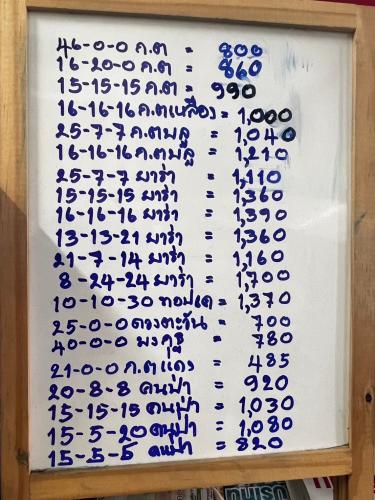 46-0-0 ค.ต = 800
16-20-0 ค.ต = 860
15-15-15 ค.ต = 990
16-16-16 ค.ต(เหลือง) = 1,000
25-7-7 ค.ตพลู = 1,040
16-16-16 ค.ตพลู = 1,210
25-7-7 ยาร่า = 1,110
15-15-15 ยาร่า = 1,360
16-16-16 ยาร่า = 1,390
13-13-21 ยาร่า = 1,360
21-7-14 ยาร่า = 1,160
8-24-24 ยาร่า = 1,700
10-10-30 ทอปเด = 1,370
25-0-0 ดวงตะวัน = 700
40-0-0 มงกุฎ = 780
21-0-0 ค.ตแดง = 485
20-8-8 คนป่า = 920
15-15-15 คนป่า = 1,030
15-5-20 คนป่า = 1,080
15-5-5 คนป่า = 820